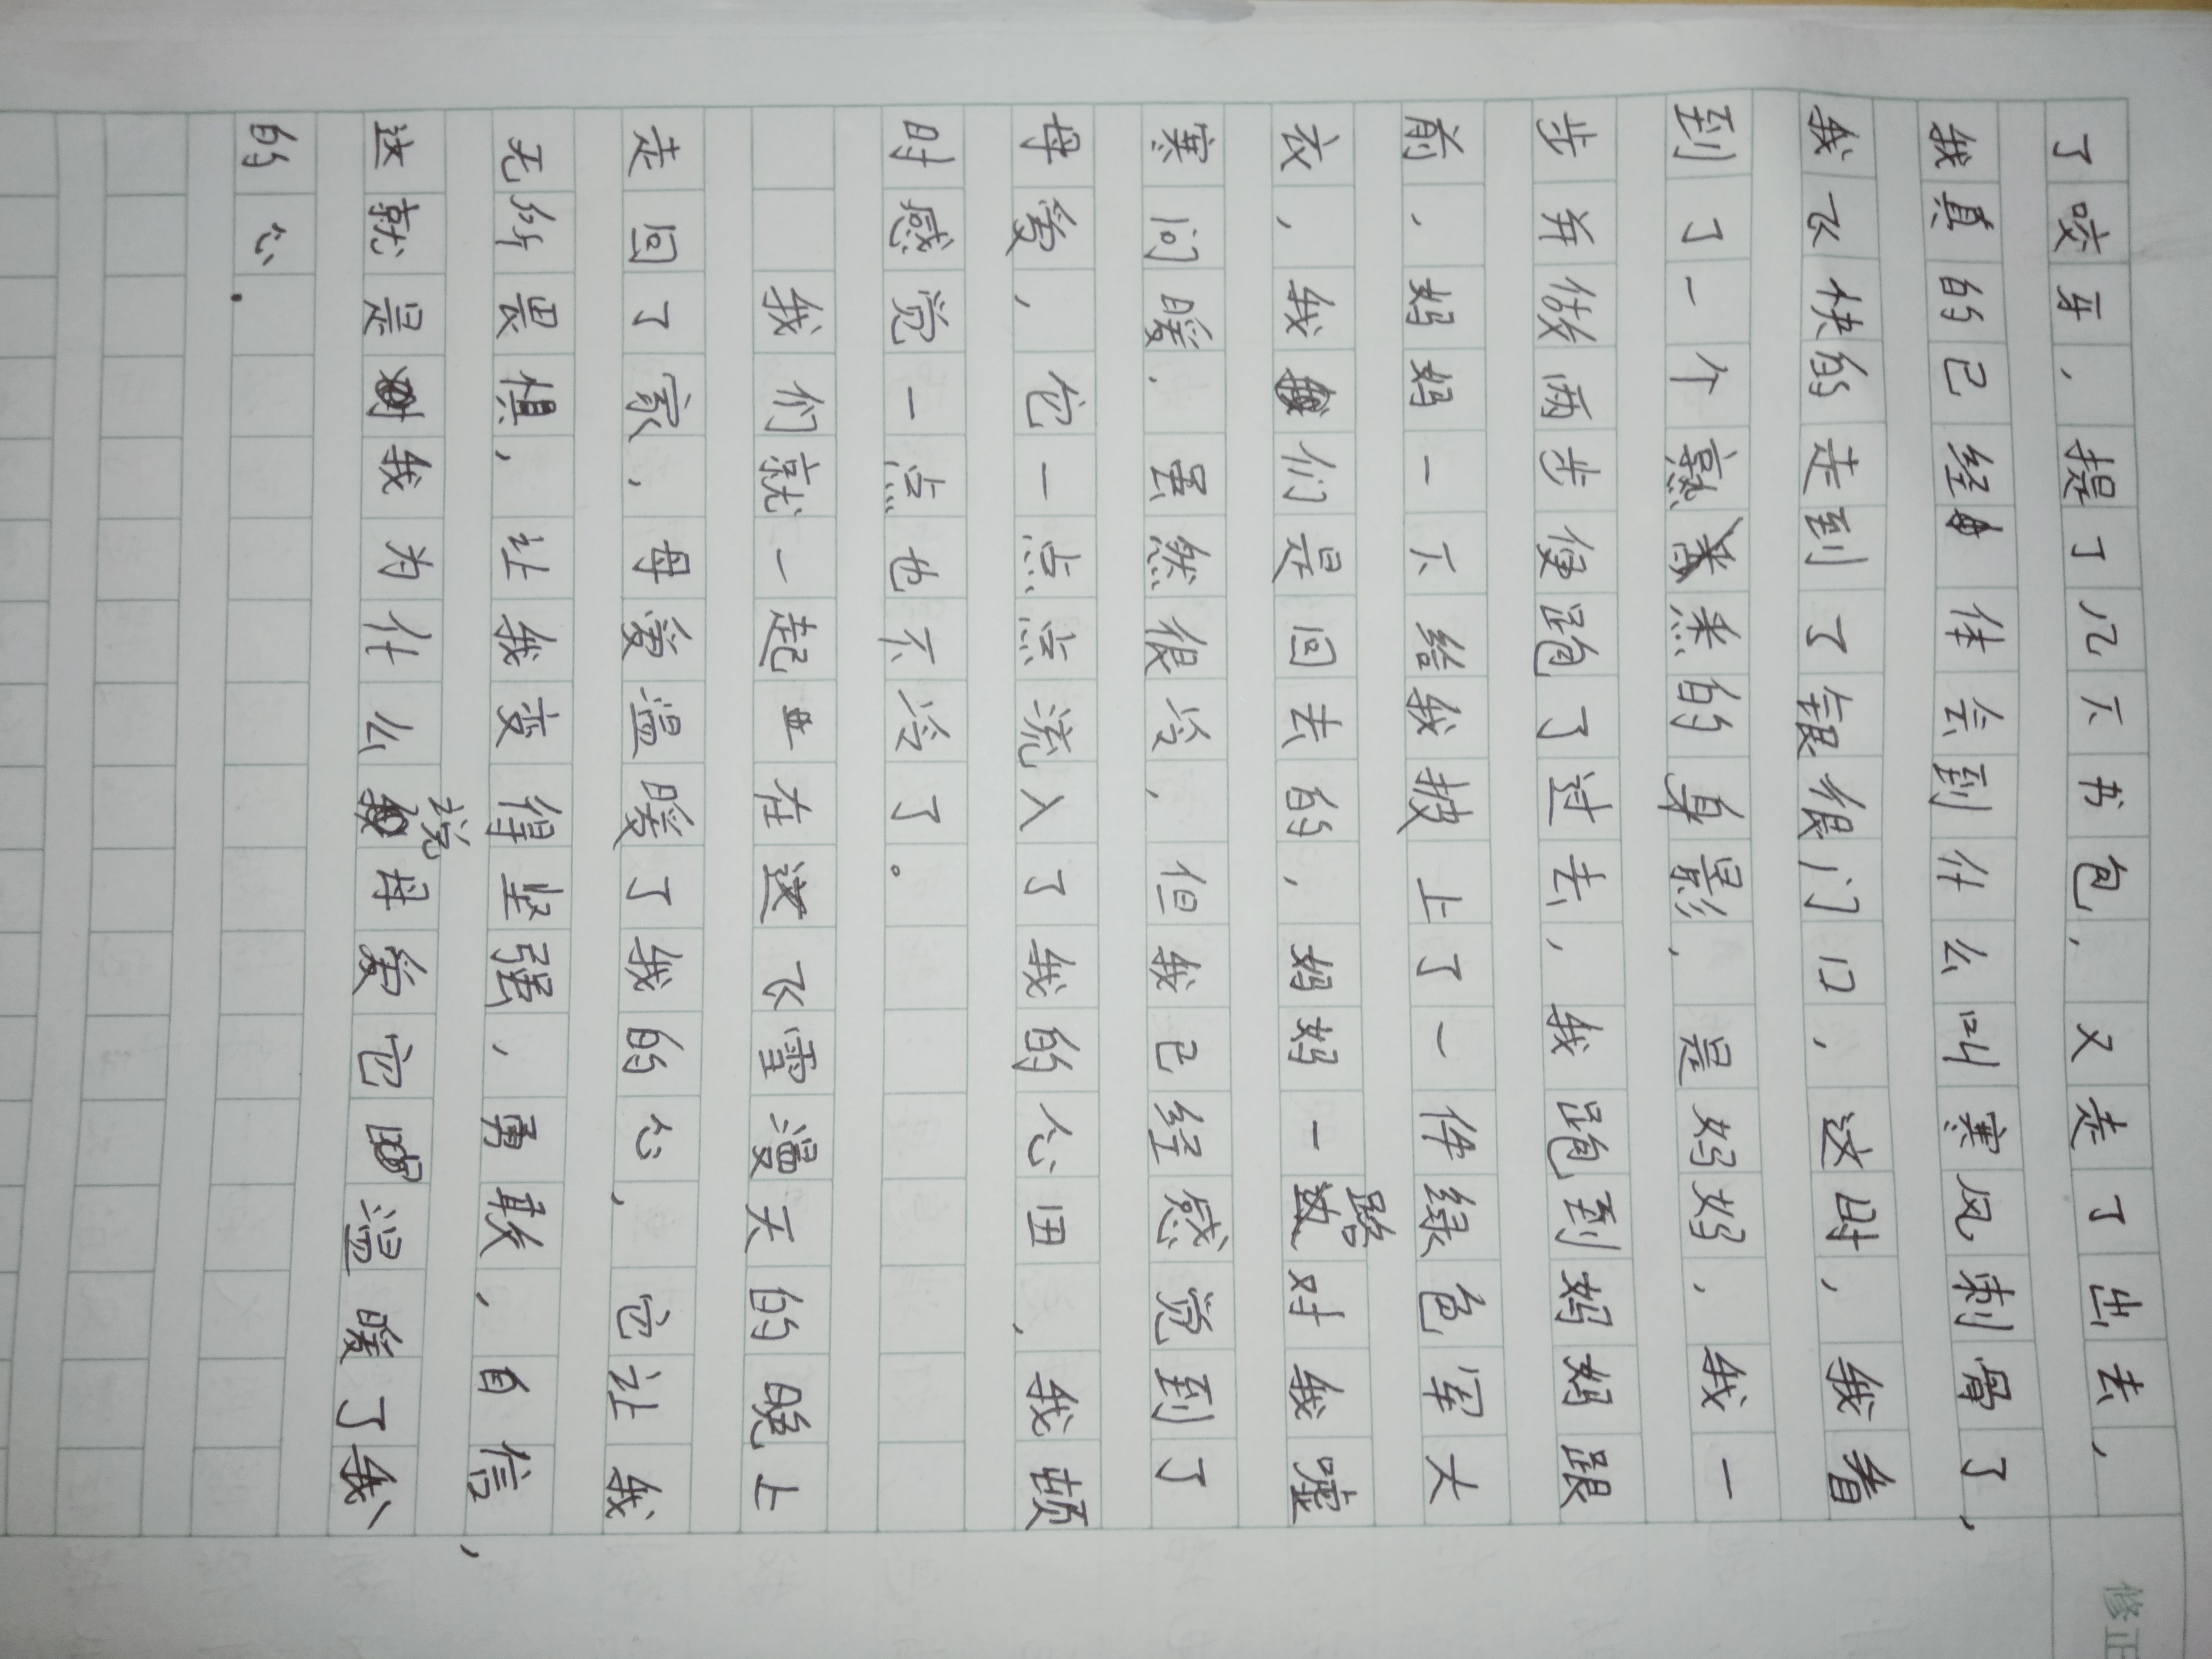 了咬牙，提了几下书包，又走了出去，
我真的已经体会到什么叫寒风刺骨了，
我飞快的走到了银很门口，这时，我看
到了一个熟悉的身影，是妈妈，我一
步并做两步便跑了过去，我跑到妈妈跟
前，妈妈一下给我披上了一件绿色军大
衣，我们是回去的，妈妈一路对我嘘
寒问暖，虽然很冷，但我已经感觉到了
母爱，它一点点流入了我的心田，我顿
时感觉一点也不冷了。
我们就一起走在这飞雪漫天的晚上
走回了家，母爱温暖了我的心，它让我
无所畏惧，让我变得坚强，勇敢，自信，
这就是我为什么说母爱它温暖了我
的心.
修正